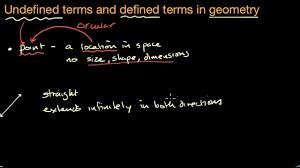 Undefined terms and defined terms in geometry
circular
• point - a location in space
no size, shape, dimensions
straight
extends infinitely in both directions